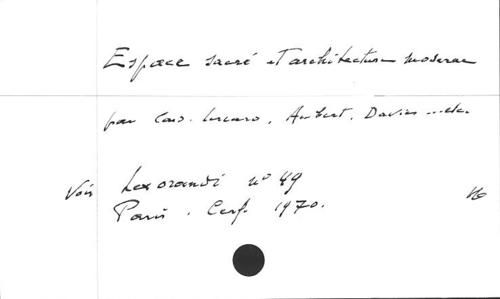 Espace sacré et architecture moderne
par Card. Lercaro, Aubert, Davies ... etc.
Voir Lex orandi n° 49
Paris. Cerf. 1970.